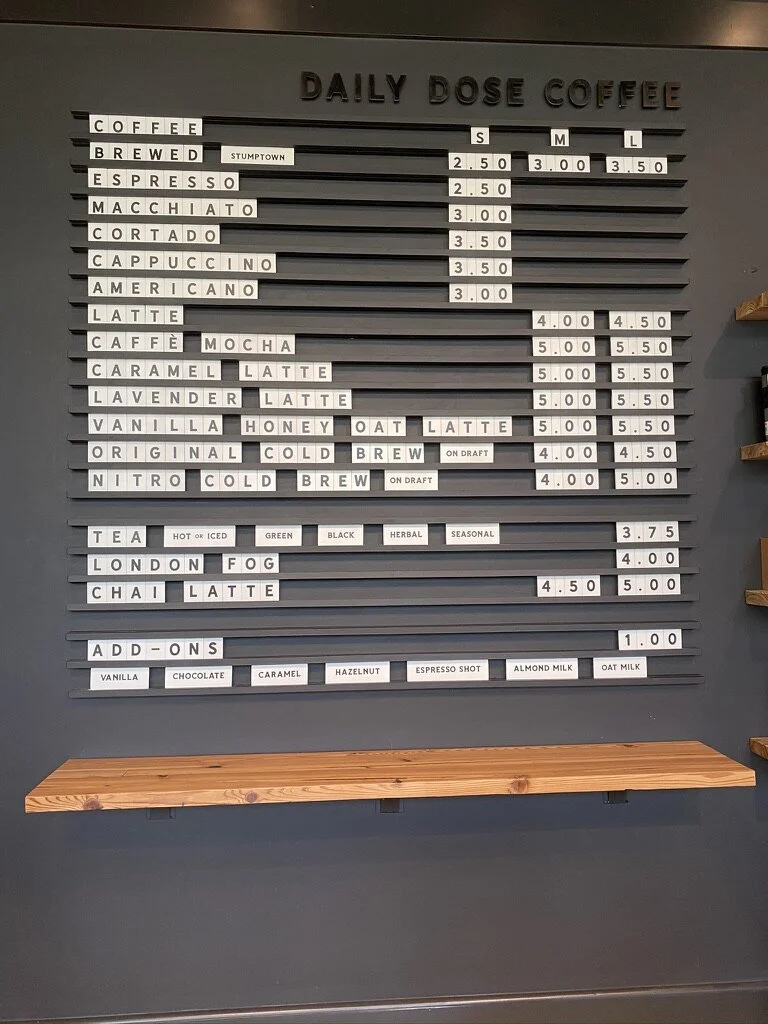 DAILY DOSE COFFEE
COFFEE S M L
BREWED STUMPTOWN 2.50 3.00 3.50
ESPRESSO 2.50
MACCHIATO 3.00
CORTADO 3.50
CAPPUCCINO 3.50
AMERICANO 3.00
LATTE 4.00 4.50
CAFFÈ MOCHA 5.00 5.50
CARAMEL LATTE 5.00 5.50
LAVENDER LATTE 5.00 5.50
VANILLA HONEY OAT LATTE 5.00 5.50
ORIGINAL COLD BREW ON DRAFT 4.00 4.50
NITRO COLD BREW ON DRAFT 4.00 5.00
TEA HOT OR ICED GREEN BLACK HERBAL SEASONAL 3.75
LONDON FOG 4.00
CHAI LATTE 4.50 5.00
ADD-ONS 1.00
VANILLA CHOCOLATE CARAMEL HAZELNUT ESPRESSO SHOT ALMOND MILK OAT MILK